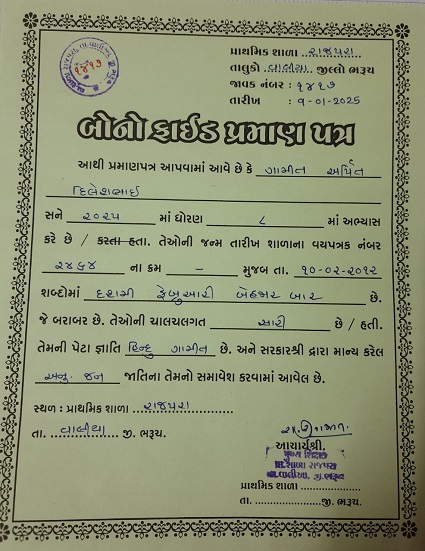 પ્રાથમિક શાળા રાજપરા
તાલુકો વાલીયા જીલ્લો ભરૂચ
જાવક નંબર : ૧૪૧૭
તારીખ : ૧-૦૧-2025
૧૪૧૭
બોનો ફાઈડ પ્રમાણ પત્ર
આથી પ્રમાણપત્ર આપવામાં આવે છે કે ગામીત અર્પિત
દિલેશભાઈ
સને ૨૦૨૫ માં ધોરણ ૮ માં અભ્યાસ
કરે છે / કરતા હતા. તેઓની જન્મ તારીખ શાળાના વયપત્રક નંબર
૨૪૬૪ ના ક્રમ - મુજબ તા. ૧૦-૦૨-૨૦૧૨
શબ્દોમાં દશમી ફેબ્રુઆરી બેહજાર બાર છે.
જે બરાબર છે. તેઓની ચાલચલગત સારી છે / હતી.
તેમની પેટા જ્ઞાતિ હિન્દુ ગામીત છે. અને સરકારશ્રી દ્વારા માન્ય કરેલ
અનુ. જન જાતિના તેમનો સમાવેશ કરવામાં આવેલ છે.
સ્થળ : પ્રાથમિક શાળા રાજપરા
તા. વાલીયા જી. ભરૂચ.
આચાર્યશ્રી.
મુખ્ય શિક્ષક
પ્રા.શાળા રાજપરા
તા.વાલીઆ, જી.ભરૂચ
પ્રાથમિક શાળા ................
તા. ....................જી. ભરૂચ.